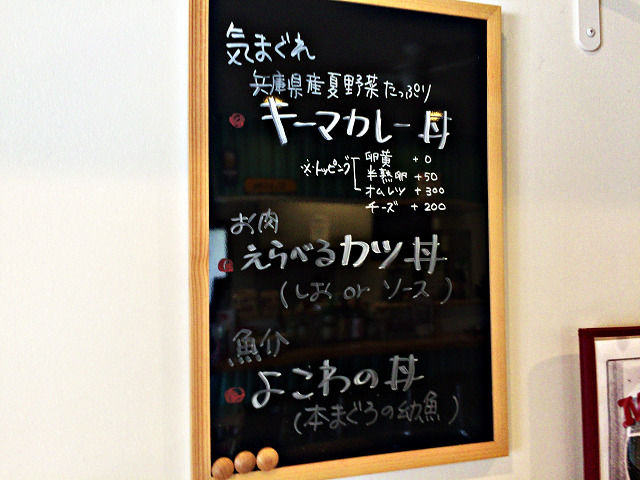 気まぐれ
兵庫県産夏野菜たっぷり
キーマカレー丼
※トッピング
卵黄 +0
半熟卵 +50
オムレツ +300
チーズ +200
お肉
えらべるカツ丼
(しお or ソース)
魚介
よこわの丼
(本まぐろの幼魚)